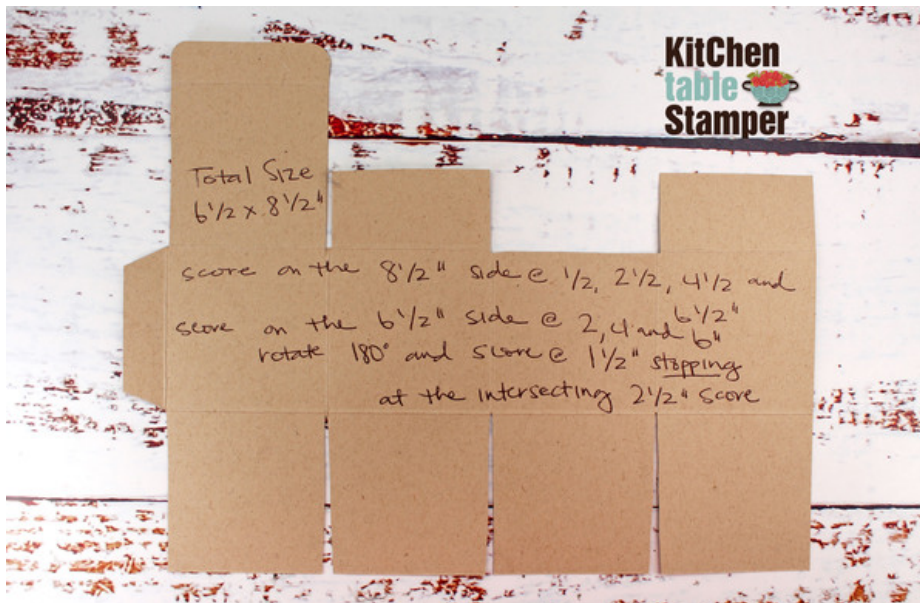 KitChen
table
Stamper
Total Size
6 1/2 x 8 1/2"
score on the 8 1/2" side @ 1/2, 2 1/2, 4 1/2 and
6 1/2"
score on the 6 1/2" side @ 2, 4 and 6"
rotate 180° and score @ 1 1/2" stopping
at the intersecting 2 1/2" score